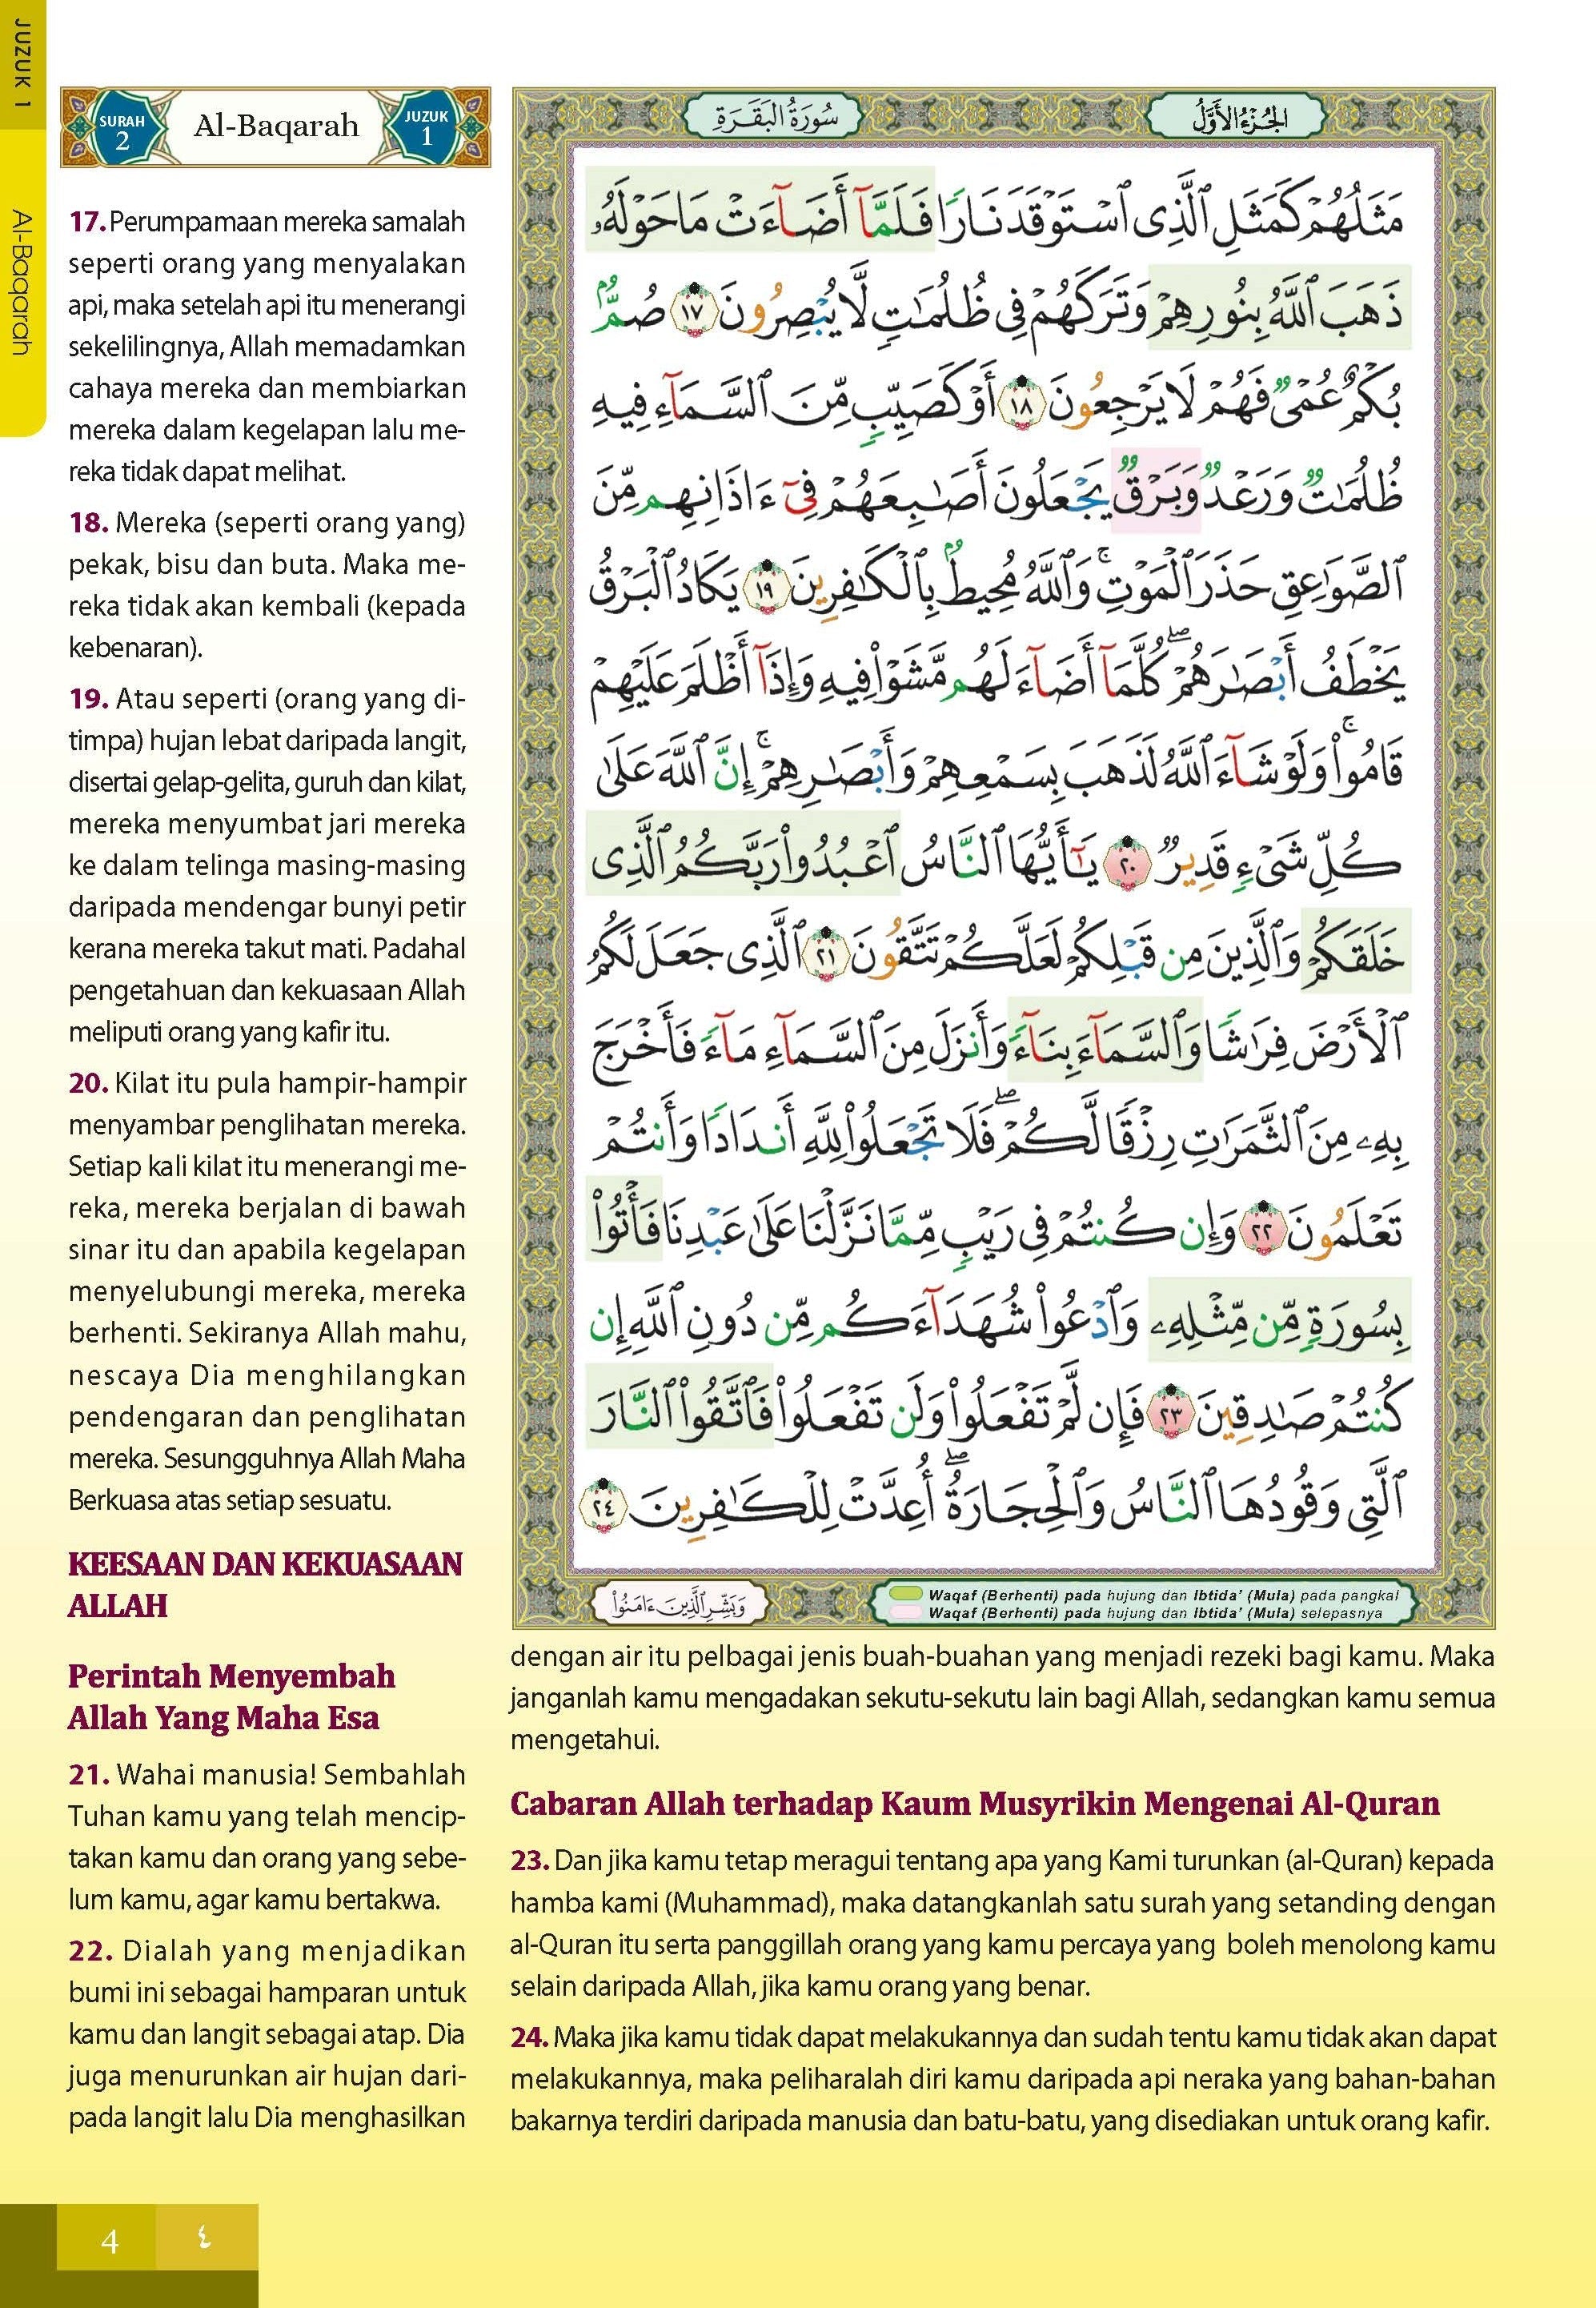 JUZUK 1
Al-Baqarah
SURAH 2
Al-Baqarah
JUZUK 1
17. Perumpamaan mereka samalah
seperti orang yang menyalakan
api, maka setelah api itu menerangi
sekelilingnya, Allah memadamkan
cahaya mereka dan membiarkan
mereka dalam kegelapan lalu me-
reka tidak dapat melihat.
18. Mereka (seperti orang yang)
pekak, bisu dan buta. Maka me-
reka tidak akan kembali (kepada
kebenaran).
19. Atau seperti (orang yang di-
timpa) hujan lebat daripada langit,
disertai gelap-gelita, guruh dan kilat,
mereka menyumbat jari mereka
ke dalam telinga masing-masing
daripada mendengar bunyi petir
kerana mereka takut mati. Padahal
pengetahuan dan kekuasaan Allah
meliputi orang yang kafir itu.
20. Kilat itu pula hampir-hampir
menyambar penglihatan mereka.
Setiap kali kilat itu menerangi me-
reka, mereka berjalan di bawah
sinar itu dan apabila kegelapan
menyelubungi mereka, mereka
berhenti. Sekiranya Allah mahu,
nescaya Dia menghilangkan
pendengaran dan penglihatan
mereka. Sesungguhnya Allah Maha
Berkuasa atas setiap sesuatu.
KEESAAN DAN KEKUASAAN
ALLAH
Perintah Menyembah
Allah Yang Maha Esa
21. Wahai manusia! Sembahlah
Tuhan kamu yang telah mencip-
takan kamu dan orang yang sebe-
lum kamu, agar kamu bertakwa.
22. Dialah yang menjadikan
bumi ini sebagai hamparan untuk
kamu dan langit sebagai atap. Dia
juga menurunkan air hujan dari-
pada langit lalu Dia menghasilkan
الجُزْءُ الأَوَّلُ
سُورَةُ البَقَرَةِ
مَثَلُهُمْ كَمَثَلِ ٱلَّذِى ٱسْتَوْقَدَ نَارًا فَلَمَّآ أَضَآءَتْ مَا حَوْلَهُۥ
ذَهَبَ ٱللَّهُ بِنُورِهِمْ وَتَرَكَهُمْ فِى ظُلُمَٰتٍ لَّا يُبْصِرُونَ ١٧ صُمٌّۢ
بُكْمٌ عُمْىٌ فَهُمْ لَا يَرْجِعُونَ ١٨ أَوْ كَصَيِّبٍ مِّنَ ٱلسَّمَآءِ فِيهِ
ظُلُمَٰتٌ وَرَعْدٌ وَبَرْقٌ يَجْعَلُونَ أَصَٰبِعَهُمْ فِىٓ ءَاذَانِهِم مِّنَ
ٱلصَّوَٰعِقِ حَذَرَ ٱلْمَوْتِ ۚ وَٱللَّهُ مُحِيطٌۢ بِٱلْكَٰفِرِينَ ١٩ يَكَادُ ٱلْبَرْقُ
يَخْطَفُ أَبْصَٰرَهُمْ ۖ كُلَّمَآ أَضَآءَ لَهُم مَّشَوْا۟ فِيهِ وَإِذَآ أَظْلَمَ عَلَيْهِمْ
قَامُوا۟ ۚ وَلَوْ شَآءَ ٱللَّهُ لَذَهَبَ بِسَمْعِهِمْ وَأَبْصَٰرِهِمْ ۚ إِنَّ ٱللَّهَ عَلَىٰ
كُلِّ شَىْءٍ قَدِيرٌ ٢٠ يَٰٓأَيُّهَا ٱلنَّاسُ ٱعْبُدُوا۟ رَبَّكُمُ ٱلَّذِى
خَلَقَكُمْ وَٱلَّذِينَ مِن قَبْلِكُمْ لَعَلَّكُمْ تَتَّقُونَ ٢١ ٱلَّذِى جَعَلَ لَكُمُ
ٱلْأَرْضَ فِرَٰشًا وَٱلسَّمَآءَ بِنَآءً وَأَنزَلَ مِنَ ٱلسَّمَآءِ مَآءً فَأَخْرَجَ
بِهِۦ مِنَ ٱلثَّمَرَٰتِ رِزْقًا لَّكُمْ ۖ فَلَا تَجْعَلُوا۟ لِلَّهِ أَندَادًا وَأَنتُمْ
تَعْلَمُونَ ٢٢ وَإِن كُنتُمْ فِى رَيْبٍ مِّمَّا نَزَّلْنَا عَلَىٰ عَبْدِنَا فَأْتُوا۟
بِسُورَةٍ مِّن مِّثْلِهِۦ وَٱدْعُوا۟ شُهَدَآءَكُم مِّن دُونِ ٱللَّهِ إِن
كُنتُمْ صَٰدِقِينَ ٢٣ فَإِن لَّمْ تَفْعَلُوا۟ وَلَن تَفْعَلُوا۟ فَٱتَّقُوا۟ ٱلنَّارَ
ٱلَّتِى وَقُودُهَا ٱلنَّاسُ وَٱلْحِجَارَةُ ۖ أُعِدَّتْ لِلْكَٰفِرِينَ ٢٤
وَبَشِّرِ ٱلَّذِينَ ءَامَنُوا۟
Waqaf (Berhenti) pada hujung dan Ibtida' (Mula) pada pangkal
Waqaf (Berhenti) pada hujung dan Ibtida' (Mula) selepasnya
dengan air itu pelbagai jenis buah-buahan yang menjadi rezeki bagi kamu. Maka
janganlah kamu mengadakan sekutu-sekutu lain bagi Allah, sedangkan kamu semua
mengetahui.
Cabaran Allah terhadap Kaum Musyrikin Mengenai Al-Quran
23. Dan jika kamu tetap meragui tentang apa yang Kami turunkan (al-Quran) kepada
hamba kami (Muhammad), maka datangkanlah satu surah yang setanding dengan
al-Quran itu serta panggillah orang yang kamu percaya yang boleh menolong kamu
selain daripada Allah, jika kamu orang yang benar.
24. Maka jika kamu tidak dapat melakukannya dan sudah tentu kamu tidak akan dapat
melakukannya, maka peliharalah diri kamu daripada api neraka yang bahan-bahan
bakarnya terdiri daripada manusia dan batu-batu, yang disediakan untuk orang kafir.
4 ٤